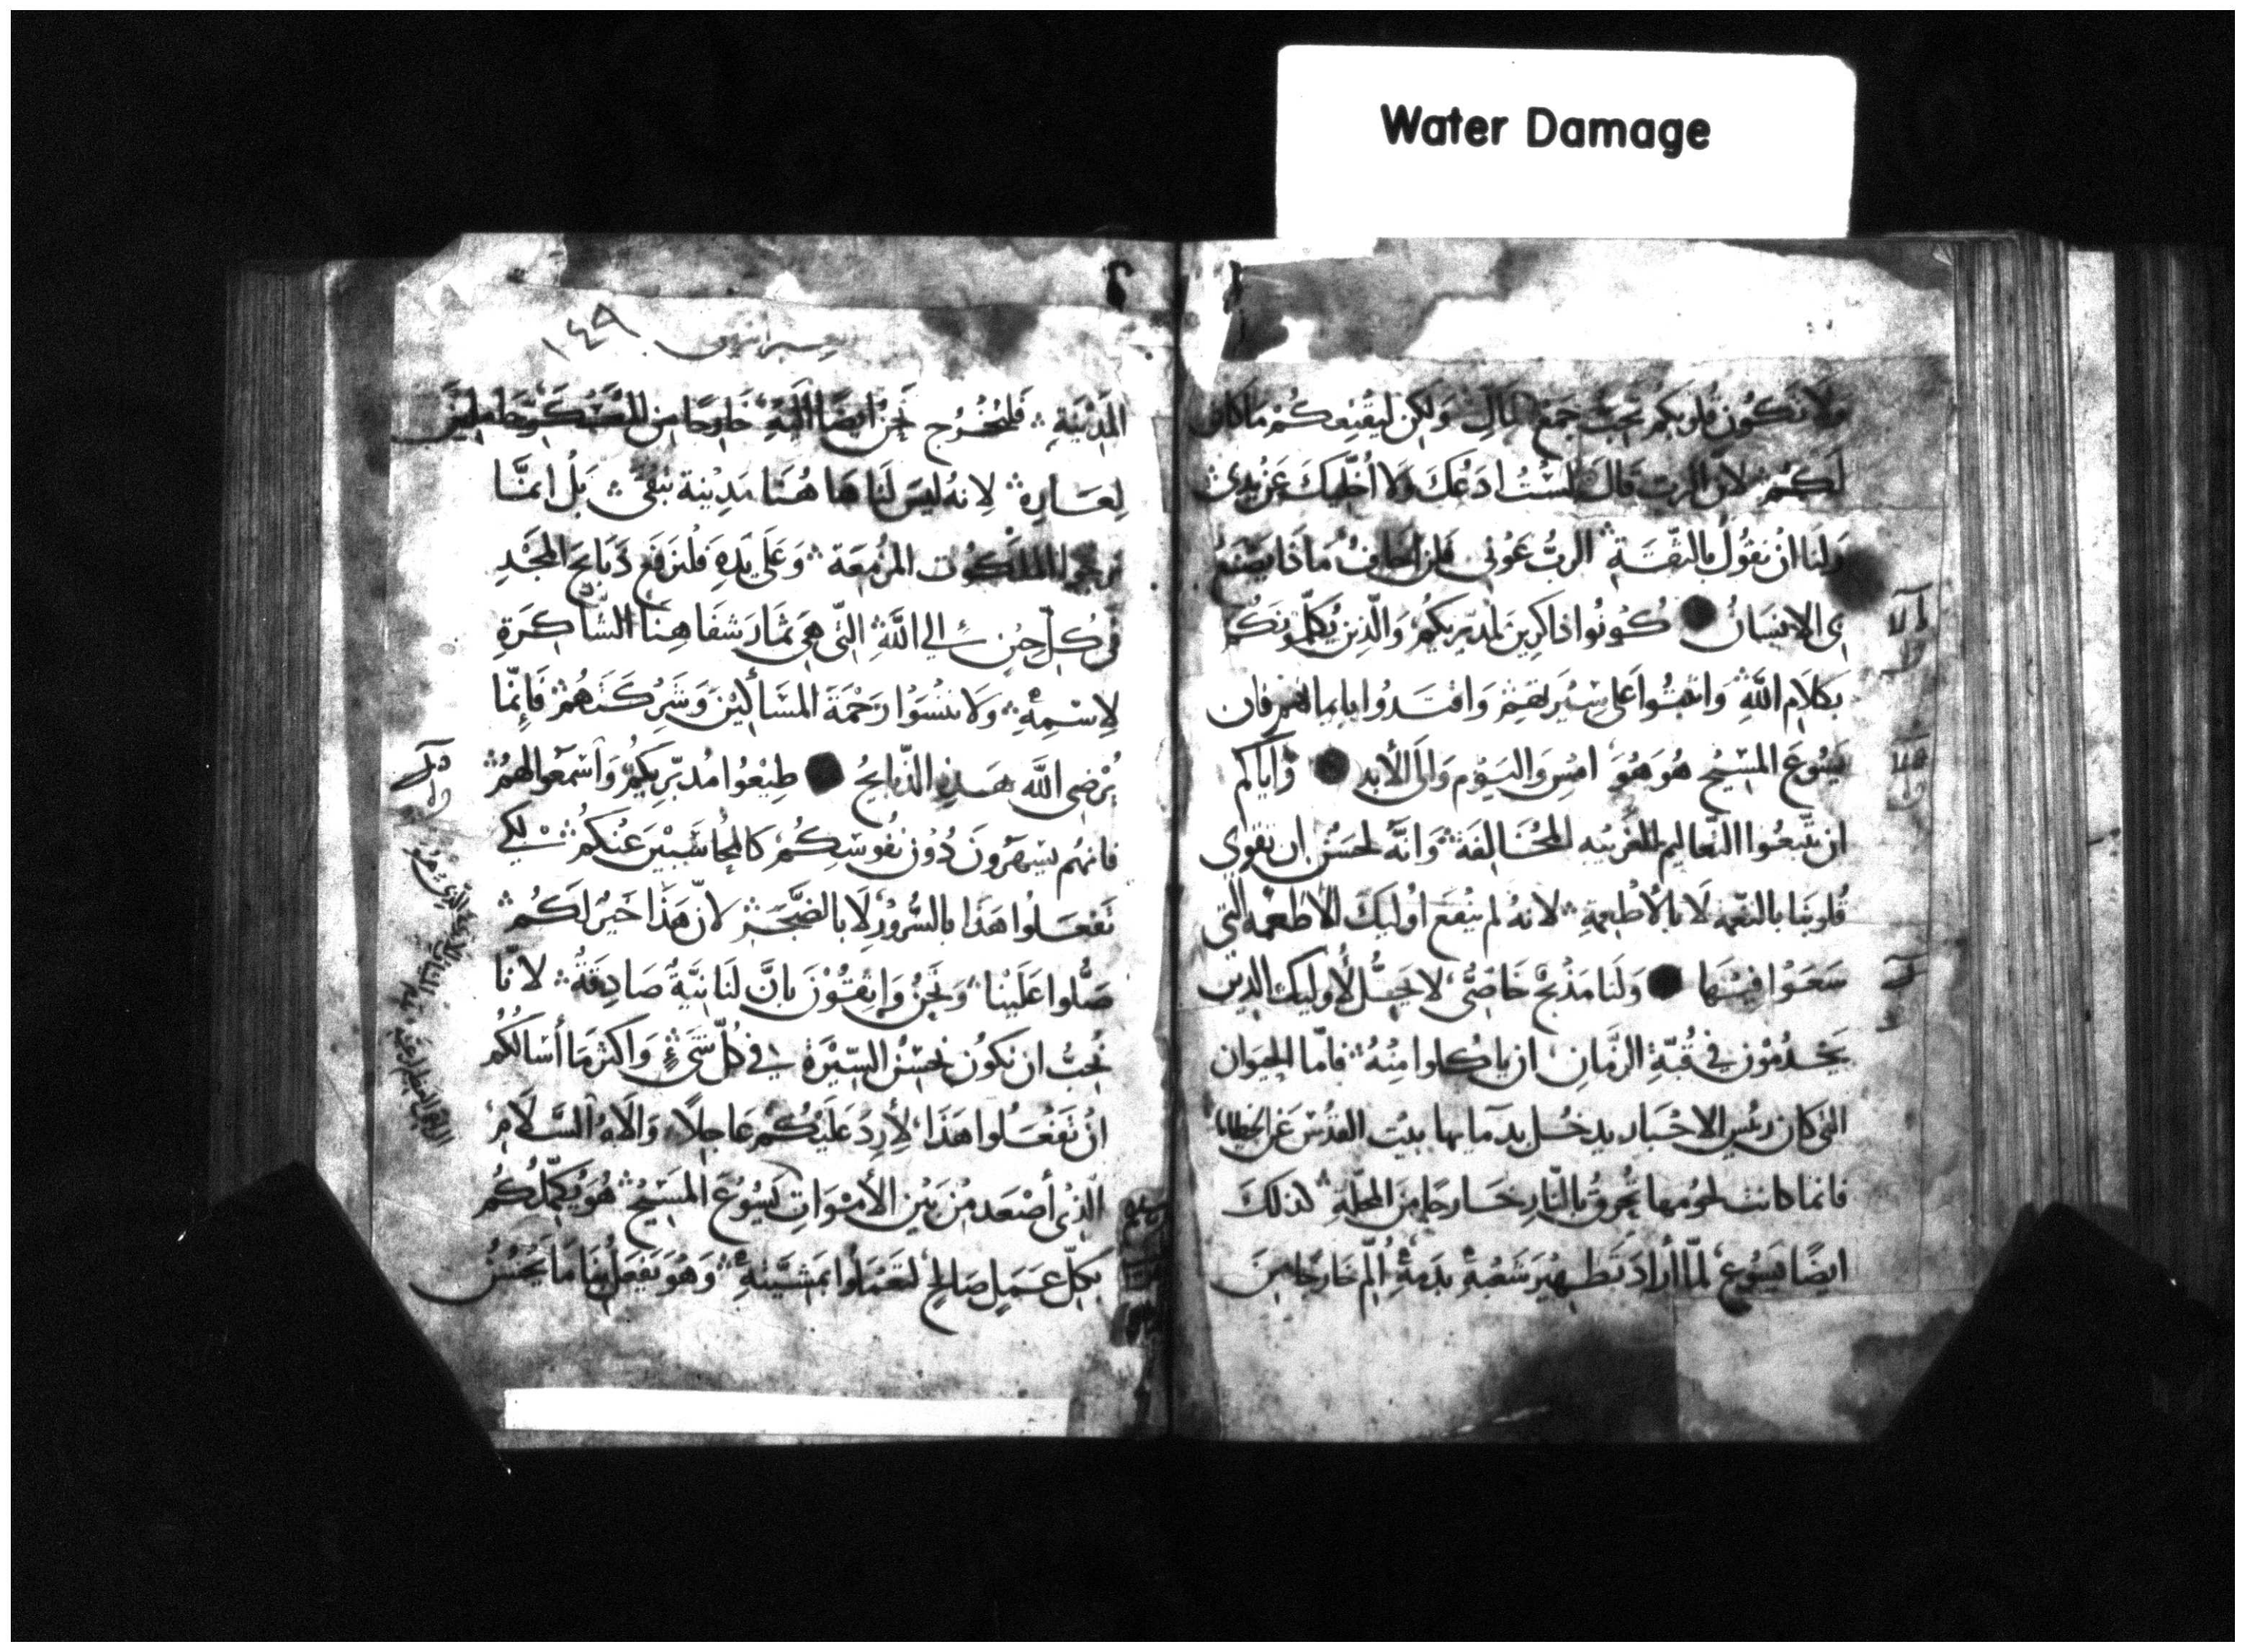 Water Damage
ولا تكون قلوبكم تحب جمع المال وَلكن ليُقنِعكُمْ مَا كان
لَكُمْ لان الرب قالَ لسْتُ ادَعُكَ وَلا اُخَلّيكَ عَن يدي
وَلنا ان نقُول بالثّقَةِ الربُّ عَوني فلن اخاف مَاذا يَصْنَعُ
بي الانسَانُ كُونُوا ذاكرينَ لمدبّريكُم وَالّذين يُكلّمونَكُم
بكلام اللّهِ واثبتُوا على سِيْرَتهم وَاقتَدُوا بايمانهم فان
يَسُوعَ المسِّيحَ هوَ هُوَ امسِ وَاليَوْم وَالى الأبد وَاياكم
ان تتّبعُوا التّعاليم الغريبه المُخَالِفَة وَانّهُ لحسَنٌ ان تقوي
قلوبنا بالنعمه لا بالأطْعِمةِ لانهُ لم ينْفع اوليكَ الأطْعمه الّتي
سَعَوْا فيْهَا وَلنا مَذْبحٌ خَاصّيٌّ لا يحِلُّ لأوليك الذين
يَخْدُمُوْن في قُبّةِ الزّمَانِ ان ياكلوا مِنْهُ فامّا الحيَوان
التي كان رئيس الاحْبَار يدخُل بدمآيها بيْت القُدْس عن الخطايا
فانما كانت لحُومها تُحرقُ بالنّارِ خَارجا مِنَ المحلّةِ لذلكَ
ايضًا يَسُوع لمّا أرَادَ تَطهِيْرَ شَعْبهِ بدَمهِ اَلِمَ خَارجًا مِنَ
١٤٩
المَدِيْنَةِ فَلنخْرُج نحنُ ايضًا اليهِ خَارجًا من العَسْكَرِ حَامِلينَ
لِعَارِهِ لانهُ ليسَ لنا هَا هُنَا مَدِيْنة تبْقى بَلْ انمَّا
نرجو الملكُوت المزْمِعَة وَعَلى يَدِهِ فلنرفَع ذبَايحَ المجْدِ
في كلّ حِيْنٍ الى اللَّهِ التّي هِيَ ثمَار شفَاهِنَا الشّاكرَةِ
لاِسْمِهِ وَلا تنْسَوْا رَحْمَةَ المسَاكينَ وَشركَتهُمْ فَاِنّما
يُرْضِى اللَّه هَذِهِ الذّبَايحُ طِيْعُوا مُدبّريكُمْ وَاسْمَعُوا لهُمْ
فانهُم يسْهَرُونَ دُوْنَ نُفُوسِكُمْ كالمُحَاسَبيْنَ عَنكُمْ لكي
تَفْعَلُوا هَذَا بالسُّرُوْرِ لَا بالضَّجَرِ لانّ هَذَا خَيرٌ لَكُمْ
صَلُّوا عَلَيْنا وَنحنُ وَاثِقُوْنَ بانَّ لَنَا نيَّةً صَادِقةً لانّا
نُحبُّ ان نكُونَ بحُسْنِ السِّيْرَةِ في كلّ شَيءٍ وَاكثر مَا أسَالُكُم
انْ تَفْعَلُوا هَذا لأُرَدَّ عَليْكُم عَاجِلًا وَالَاهُ السَّلَامِ
الذي أصْعَدَ مِنْ بَيْنِ الأمْوَاتِ يَسُوْعَ المسَيْحَ هُوَ يُكمّلُكُم
بكلّ عَمَلٍ صَالحٍ لتَعْمَلُوا بمشِيَّتِهِ وَهُوَ يفعَل بنا مَا يَحْسُنُ